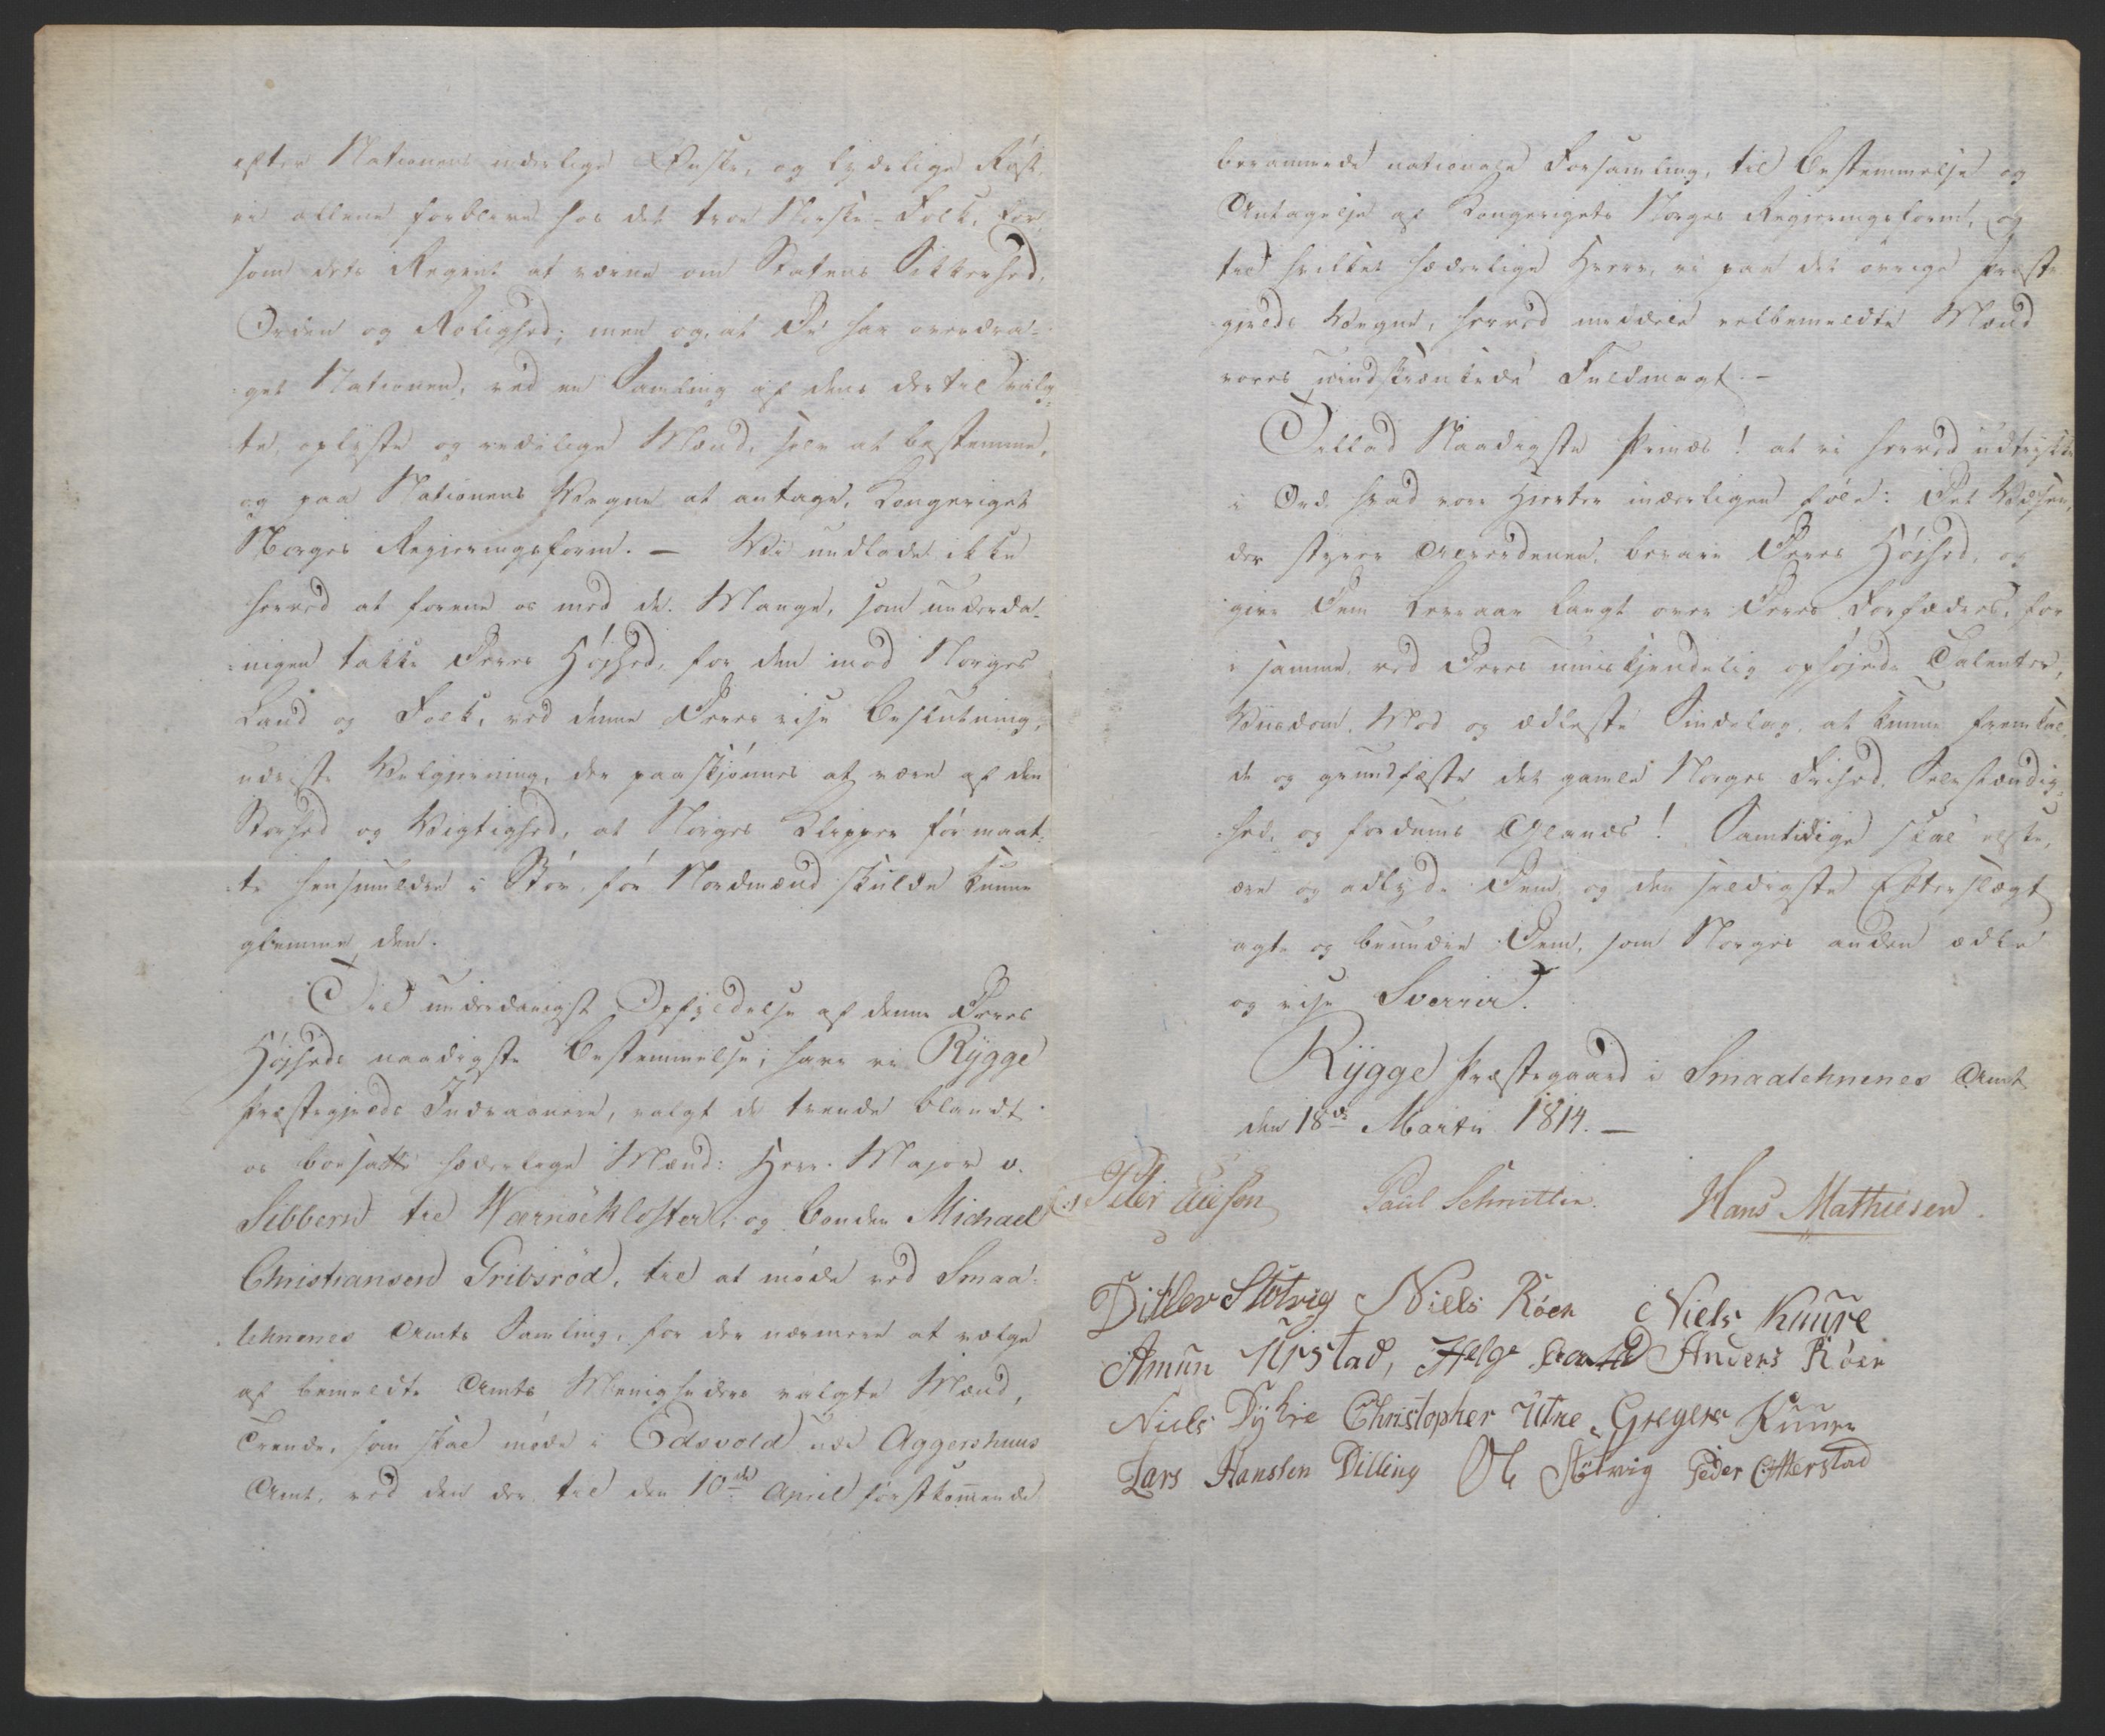 efter Nationens inderlige Ønske, og lydelige Røst,
vi allene forblive hos det troe Norske-Folk, for,
som dets Regent at værne om Statens Sikkerhed,
Orden og Rolighed; men og, at De har overdra-
get Nationen, ved en Samling af dens dertil valg-
te, oplyste og redelige Mænd, selv at bestemme,
og paa Nationens Vegne at antage, Kongeriget
Norges Regieringsform. — Vi undlade ikke
herved at forene os med de Mange, som underda-
nigen takke Deres Højhed, for den imod Norges
Land og Folk, ved denne Deres vise Beslutning,
udviste Velgjerning, der paaskjönnes at være af den
Storhed og Vigtighed, at Norges Klipper för maat-
te hensmuldre i Stöv, för Nordmænd skulde kunne
glemme den.
Til underdanigst Opfyldelse af denne Deres
Højheds naadigste Bestemmelse, have vi Rÿgge
Præstegjelds Indvaanere, valgt de trende blandt
os bosatte hæderlige Mænd: Herr Major v.
Sibbern til Wærnöekloster, og Bonden Michael
Christiansen Gribsröd, til at möde ved Smaa-
lehnenes Amts Samling, for der nærmere at vælge
af bemeldte Amts Menigheders valgte Mænd,
Trende, som skal möde i Edsvold ude Aggershuus
Amt, ved den der til den 10de April förstkommende
berammede nationale Forsamling, til Bestemmelse og
Antagelse af Kongeriget Norges Regjeringsform, og
til hvilket hæderlige Hverv, vi paa det övrige Præste-
gjelds Vegne, herved meddele velbemeldte Mænd
vores uindskrænkede Fuldmagt. —
Tillad Naadigste Prinds! at vi herved udtrykke
i Ord, hvad vore Hjerter inderligen föle: Det Væsen,
der styrer Alverdenen, bevare Deres Höjhed, og
give Dem Leveaar langt over Deres Forfædres, for
i samme, ved Deres umiskjendelig ophöjede Talenter,
Viisdom, Mod og ædleste Sindelag, at kunne fremkal-
de og grundfæste det gamle Norges Frihed, Selvstændig-
hed, og fordums Glands! Samtidige skal elske,
ære og adlyde Dem, og den sildigste Efterslægt
agte og beundre Dem, som Norges anden ædle
og vise Sverrir.
Rÿgge Præstegaard i Smaalehnenes Amt
den 18de Martii 1814. —
Peter Eliesen Paul Schnitler. Hans Mathiesen.
Ditlev Stötvig Niels Röer Niels Kuure
Amun Urstad, Helge Anders Röer
Niels Dÿhre Christopher Utne Gregers Kuure
Lars Hanssen Dilling Ole Stötvig Peder Otterstad